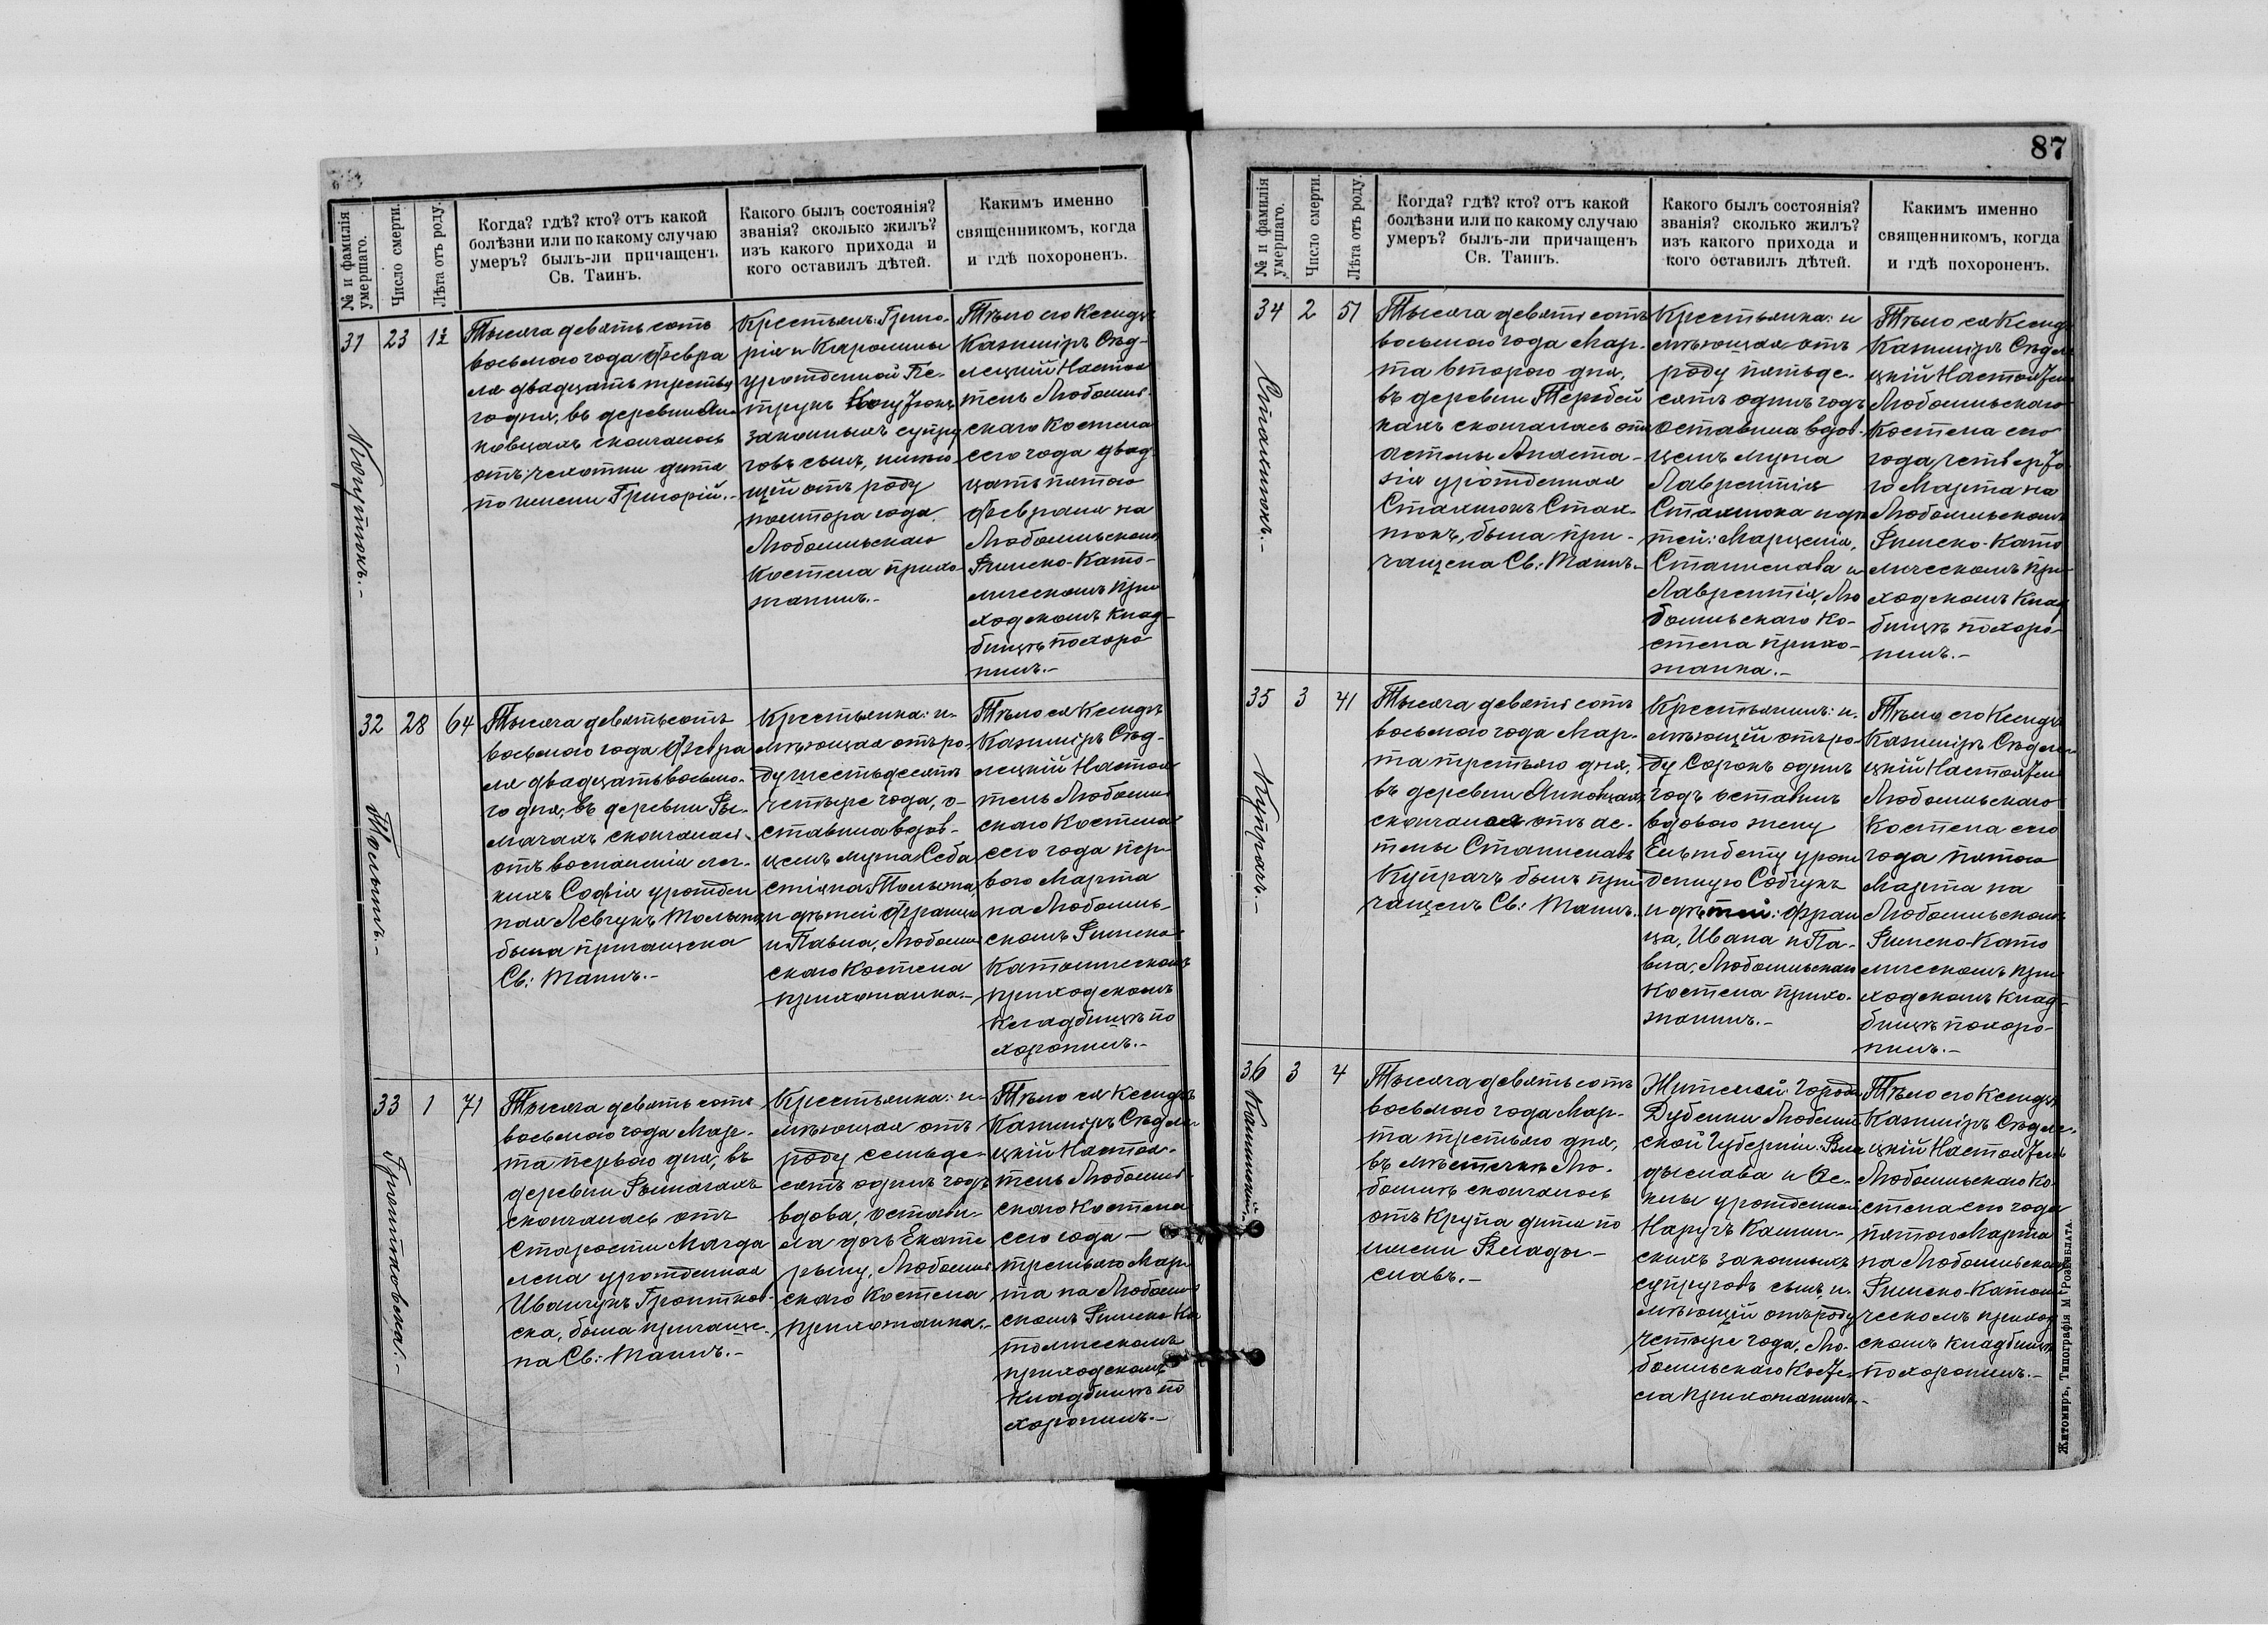 87
№ и фамилія умершаго.
Число смерти.
Лѣта отъ роду.
Когда? гдѣ? кто? отъ какой
болѣзни или по какому случаю
умеръ? былъ-ли причащенъ
Св. Таинъ.
Какого былъ состоянія?
званія? сколько жилъ?
изъ какого прихода и
кого оставилъ дѣтей.
Какимъ именно
священникомъ, когда
и гдѣ похороненъ.
31
23
1½
Тысяча девятьсотъ
восьмого года Февра
ля двадцать третья
го дня, въ деревни Ян
ковцахъ скончалось
отъ: чехотки дитя
по имени Григорій.-
Крестьянъ: Григо-
рія и Каролины
урожденной Пе-
трукъ
законныхъ супру
говъ сынъ, имѣю
щій отъ роду
полтора года.
Любомльскаго
Костела прихо-
жанинъ.-
Тѣло его Ксендзъ
Казиміръ Сѣд-
лецкій Настоя
тель Любомль-
скаго Костела
сего года двад
цать пятого
Февраля на
Любомльскомъ
Римско-Като-
лическомъ При
ходскомъ Клад-
бищѣ похоро
нилъ.-
32
28
64
Тольпинъ.-
Тысяча девятьсотъ
восьмого года Февра
ля двадцать восьмо-
го дня, въ деревни Ры-
мачахъ скончалась
отъ воспаленія лег-
кихъ Софія урожден
ная Левчукъ
была причащена
Св: Таинъ.-
Крестьянка: и-
мѣющая отъ ро-
ду шестьдесятъ
четыре года, о-
ставила вдов-
цемъ мужа Себа
стіяна
и дѣтей Франца
и Павла, Любомль
скаго Костела
прихожанка.-
Тѣло ея Ксендзъ
Казиміръ Сѣд-
лецкій Настоя
тель Любомль
скаго Костела
сего года пер-
вого Марта
на Любомль-
скомъ Римско-
Католическомъ
приходскомъ
Кладбищѣ по
хоронилъ.-
33
1
71
Гронтковска.-
Тысяча девять сотъ
восьмого года Мар-
та первого дня, въ
деревни Рымачахъ
скончалась отъ
старости Магда
лена урожденная
Иванчукъ Гронтков-
ска, была причаще-
на Св: Таинъ.-
Крестьянка: и-
мѣющая отъ
роду семьде-
сятъ одинъ годъ
вдова, остави-
ла дочь Екате
рыну, Любомль
скаго Костела
прихожанка.-
Тѣло ея Ксендзъ
Казиміръ Сѣдле-
цкій Настоя-
тель Любомль-
скаго Костела
сего года -
третьяго Мар
та на Любомль
скомъ Римско-Ка
толическомъ
приходскомъ
Кладбищѣ по
хоронилъ.-
34
2
51
Стахнюкъ.-
Тысяча девятьсотъ
восьмого года Мар-
та второго дня,
въ деревни Теребей
кахъ скончалась отъ
астмы Анаста-
зія урожденная
Стахнюкъ Стах-
нюкъ, была при-
чащена Св: Таинъ.-
Крестьянка: и
мѣющая отъ
роду пятьде-
сятъ одинъ годъ
оставила вдов-
цемъ мужа
Лаврентія
Стахнюка и дѣ
тей: Марцелія,
Станислава и
Лаврентія, Лю
бомльскаго Ко-
стела прихо-
жанка.-
Тѣло ея Ксендзъ
Казиміръ Сѣдле
цкій Настоятель
Любомльскаго
Костела сего
года четверто
го Марта на
Любомльскомъ
Римско-Като
лическомъ При-
ходскомъ Клад
бищѣ похоро-
нилъ.-
35
3
41
Купрачъ.-
Тысяча девятьсотъ
восьмого года Мар-
та третьяго дня,
въ деревни Янковцахъ
скончался отъ ас-
тмы Станиславъ
Купрачъ былъ при
чащенъ Св: Таинъ.
Крестьянинъ: и-
мѣющій отъ ро-
ду Сорокъ одинъ
годъ оставилъ
вдовою жену
Ельжбету урож
денную Собчукъ
и дѣтей: Фран
ца, Ивана и Па-
вла, Любомльскаго
Костела прихо-
жанинъ.-
Тѣло его Ксендзъ
Казиміръ Сѣдле-
цкій Настоятель
Любомльскаго
Костела сего
года пятого
Марта на
Любомльскомъ
Римско-Като
лическомъ При
ходскомъ Клад-
бищѣ похоро-
нилъ.-
36
3
4
Калинскій.-
Тысяча девятьсотъ
восьмого года Мар-
та третьяго дня,
въ мѣстечкѣ Лю-
бомлѣ скончалось
отъ Крупа дитя по
имени Влады-
славъ.-
Жителей: Города
Дубенки Люблин
ской Губерніи. Вла
дыслава и
урожденной
законныхъ
супруговъ сынъ, и-
мѣющій отъ роду
четыре года, Лю-
бомльскаго Косте-
ла прихожанинъ.-
Тѣло его Ксендзъ
Казиміръ Сѣдле-
цкій Настоятель
Любомльскаго Ко-
стела сего года
пятого Марта
на Любомльскомъ
Римско-Католи
ческомъ приход
скомъ Кладбищѣ
похоронилъ.-
Житомиръ, Типографія М. РОЗЕНБЛАТА